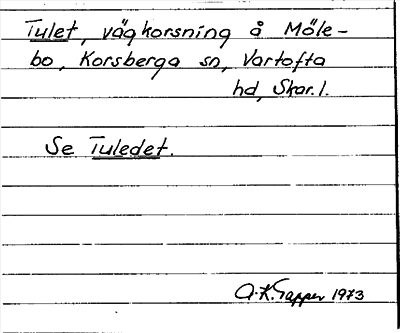 Tulet, vägkorsning å Möle-
bo, Korsberga sn, Vartofta
hd, Skar. l.
Se Tuledet.
A-K. Tapper 1973